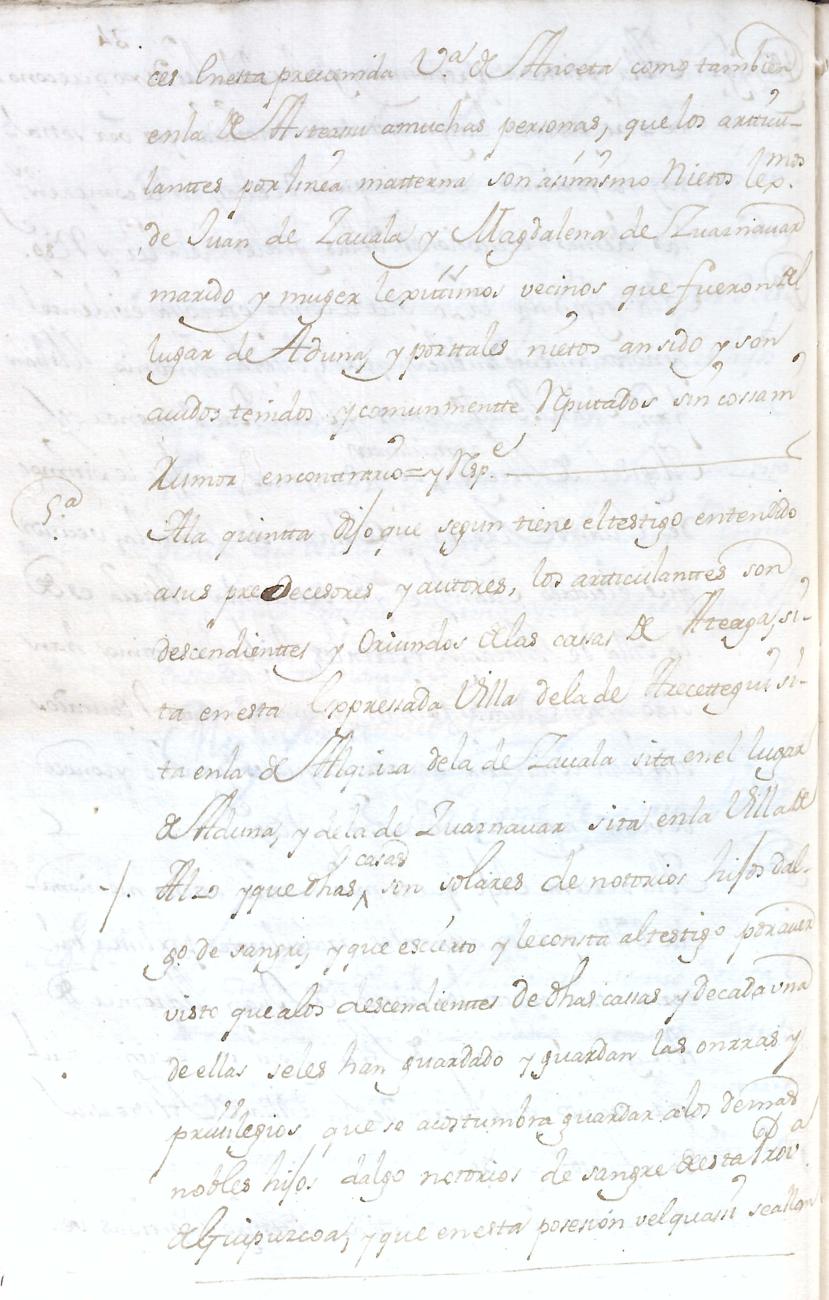 ces Enesta precenida V.ª de Anoeta como tambien
en la de Asteasu amuchas personas, que los articu-
lanttes por linea matterna son asimismo Nietos lexmos.
de Juan de Zavala y Magdalena de Yzuarnavar
marido y muger lexittimos vecinos que fueron del
lugar de Aduna, y porttales nietos an sido y son
avidos tenidos y comunmentte Reputados sin cossani
Rumor encontrario = y Resp.e
5.ª
Ala quintta dijo que segun tiene eltestigo entendido
asus predecesores y autores, los artticulanttes son
descendienttes y Oriundos delas casas de Ateaga, si-
ta enesta Expressada Villa dela de Arecettegui si-
ta enla de Alquiza dela de Zavala sita enel lugar
de Aduna, y dela de Yzuarnavar sita enla Villa de
Alzo yque dhas casas son solares de notorios hijos dal-
go de sangre, yque escierto y leconsta altestigo poraver
visto quealos descendienttes de dhas cassas y decada una
de ellas seles han guardado y guardan las onrras y
privilegios que se acostumbra guardar alos demas
nobles hijos dalgo notorios de sangre de esta Prov.ª
de Guipuzcoa, yque enesta posesion velquassi seallan